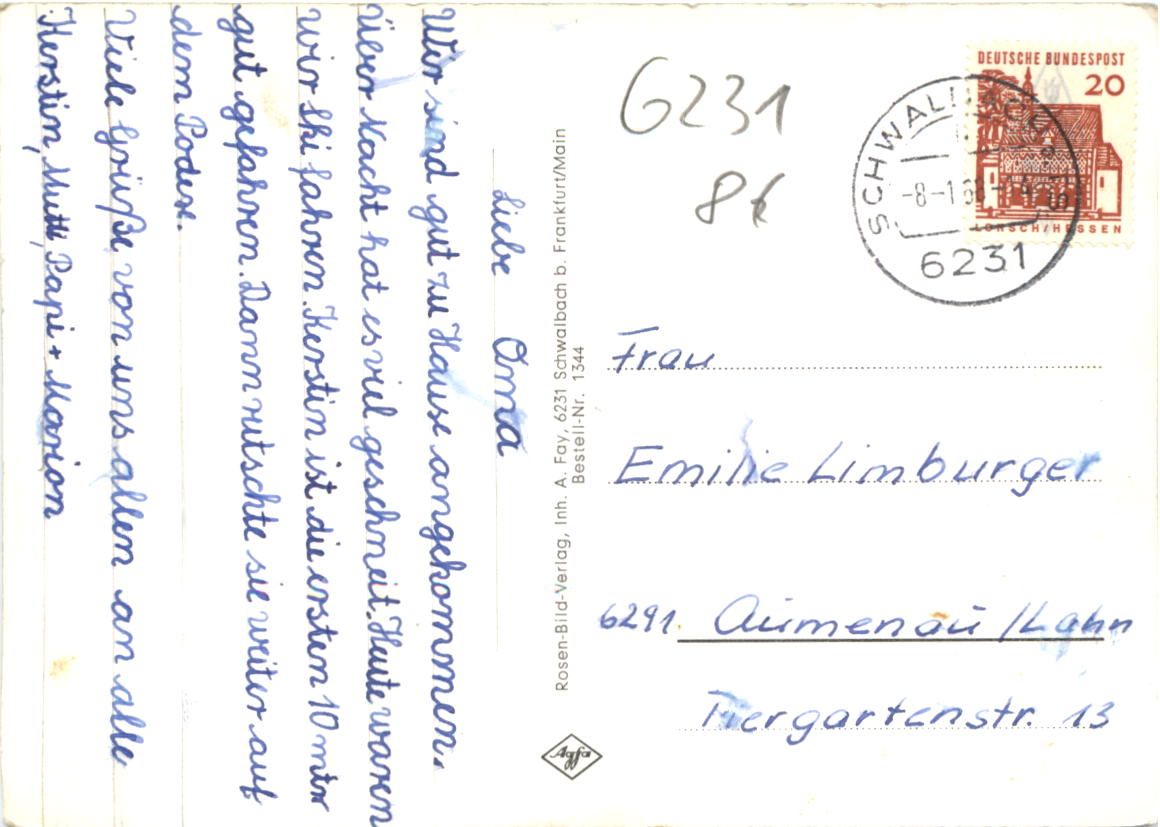 Liebe Oma
Wir sind gut zu Hause angekommen.
Über Nacht hat es viel geschneit. Heute waren
wir Ski fahren. Kerstin ist die ersten 10 mtr
gut gefahren. Dann rutschte sie weiter auf
dem Podex.
Viele Grüße von uns allen an alle
Kerstin, Mutti, Papi + Marion
Rosen-Bild-Verlag, Inh. A. Fay, 6231 Schwalbach b. Frankfurt/Main
Bestell-Nr. 1344
6231
8€
DEUTSCHE BUNDESPOST
20
LORSCH/HESSEN
6231
Frau
Emilie Limburger
6291 Aumenau/Lahn
Tiergartenstr. 13
Agfa